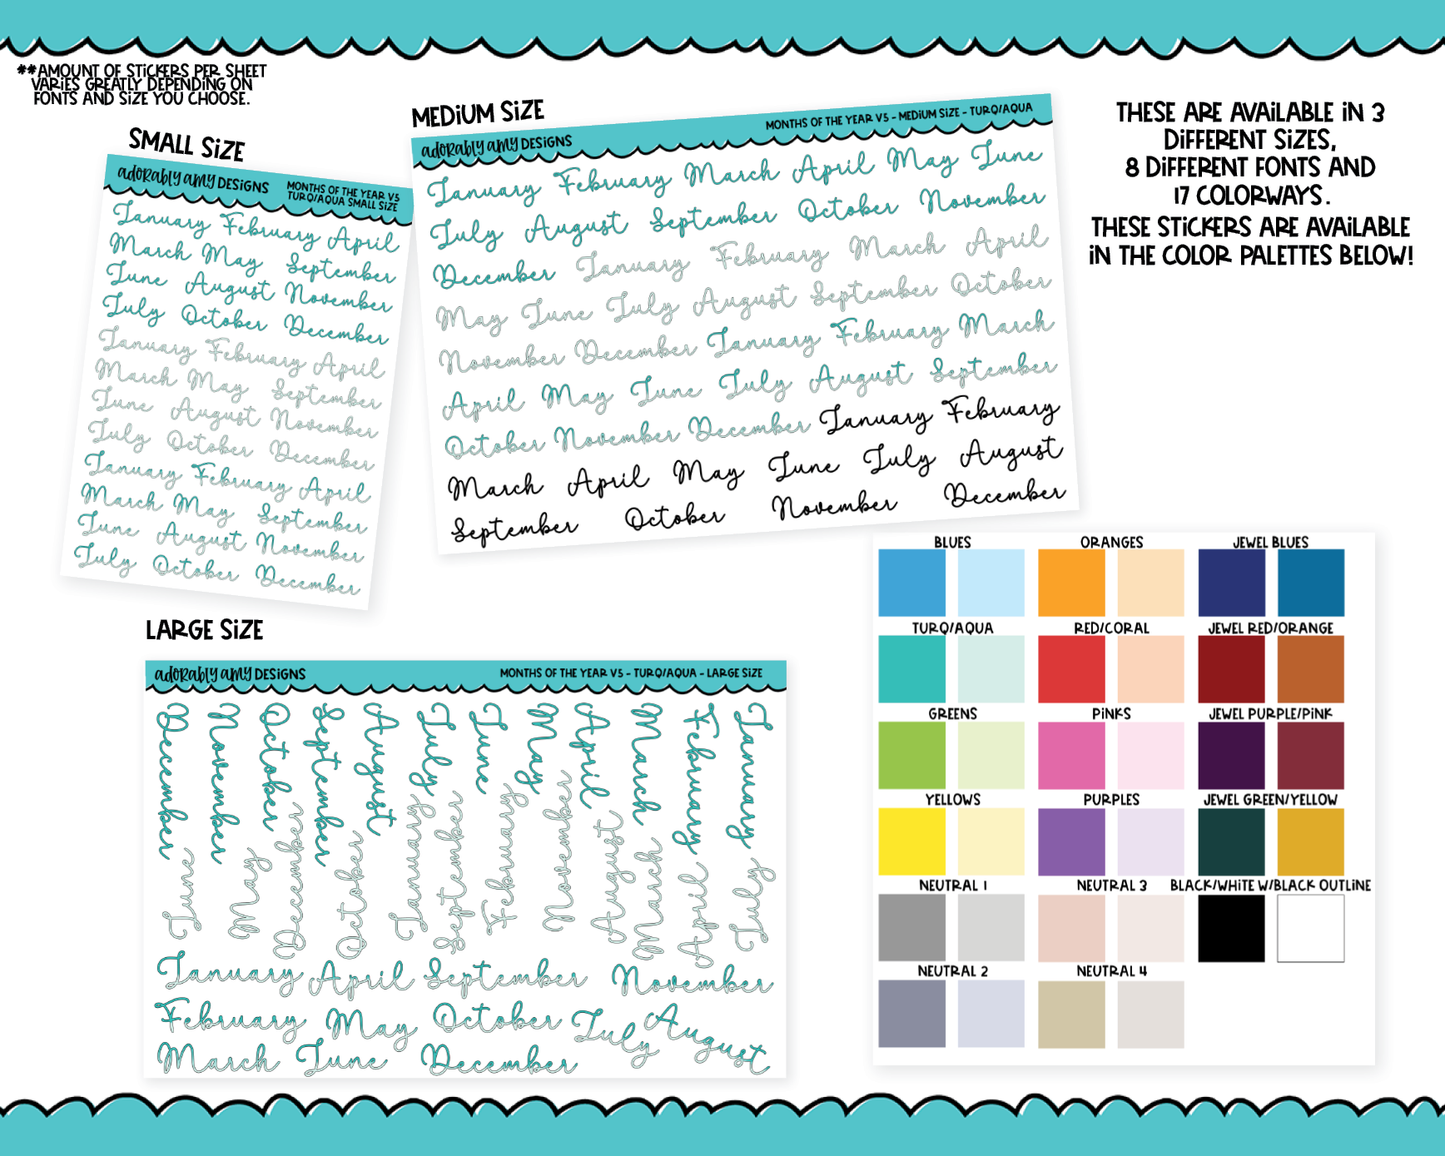 **AMOUNT OF STICKERS PER SHEET
VARIES GREATLY DEPENDING ON
FONTS AND SIZE YOU CHOOSE.
SMALL SIZE
adorably amy DESIGNS
MONTHS OF THE YEAR V5
TURQ/AQUA SMALL SIZE
January February April
March May September
June August November
July October December
January February April
March May September
June August November
July October December
January February April
March May September
June August November
July October December
MEDIUM SIZE
adorably amy DESIGNS
MONTHS OF THE YEAR V5 - MEDIUM SIZE - TURQ/AQUA
January February March April May June
July August September October November
December January February March April
May June July August September October
November December January February March
April May June July August September
October November December January February
March April May June July August
September October November December
THESE ARE AVAILABLE IN 3
DIFFERENT SIZES,
8 DIFFERENT FONTS AND
17 COLORWAYS.
THESE STICKERS ARE AVAILABLE
IN THE COLOR PALETTES BELOW!
LARGE SIZE
adorably amy DESIGNS
MONTHS OF THE YEAR V5 - TURQ/AQUA - LARGE SIZE
December
November
October
September
August
July
June
May
April
March
February
January
June
May
December
October
January
September
February
November
August
March
April
July
January April September November
February May October July August
March June December
BLUES ORANGES JEWEL BLUES
TURQ/AQUA RED/CORAL JEWEL RED/ORANGE
GREENS PINKS JEWEL PURPLE/PINK
YELLOWS PURPLES JEWEL GREEN/YELLOW
NEUTRAL 1 NEUTRAL 3 BLACK/WHITE W/BLACK OUTLINE
NEUTRAL 2 NEUTRAL 4